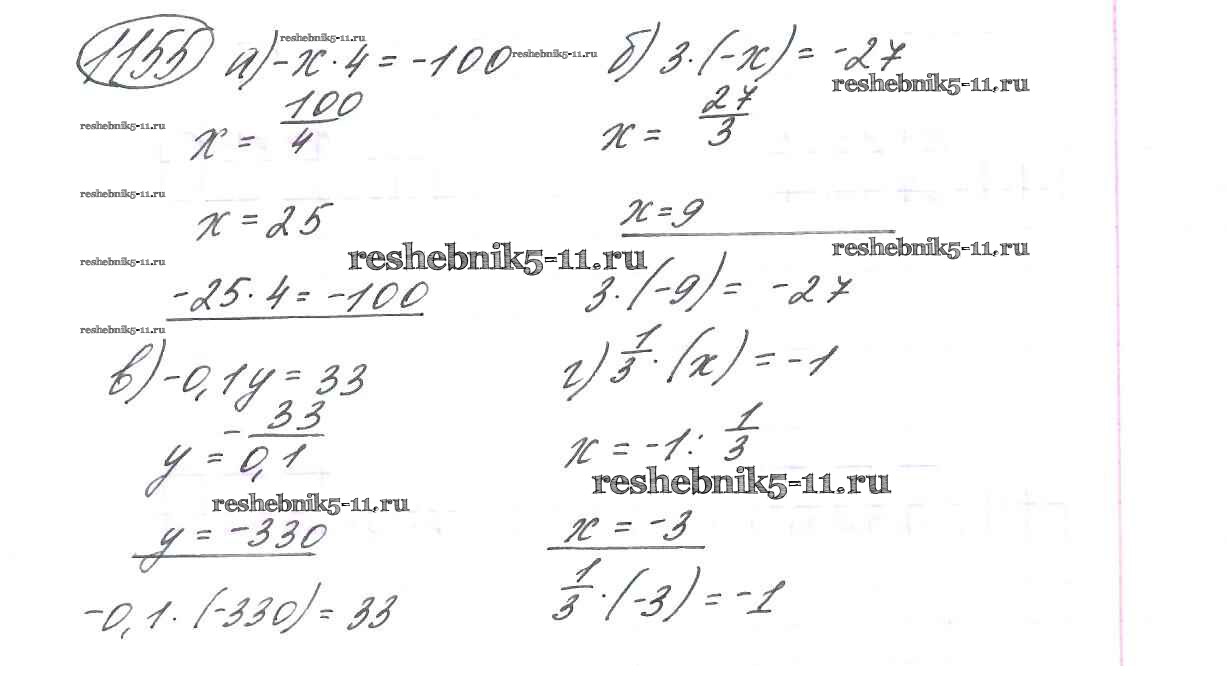 1155 а) -x · 4 = -100
x = 100/4
x = 25
-25 · 4 = -100
б) 3 · (-x) = -27
x = 27/3
x = 9
3 · (-9) = -27
в) -0,1y = 33
y = - 33/0,1
y = -330
-0,1 · (-330) = 33
г) 1/3 · (x) = -1
x = -1 : 1/3
x = -3
1/3 · (-3) = -1
reshebnik5-11.ru
reshebnik5-11.ru
reshebnik5-11.ru
reshebnik5-11.ru
reshebnik5-11.ru
reshebnik5-11.ru
reshebnik5-11.ru
reshebnik5-11.ru
reshebnik5-11.ru
reshebnik5-11.ru
reshebnik5-11.ru